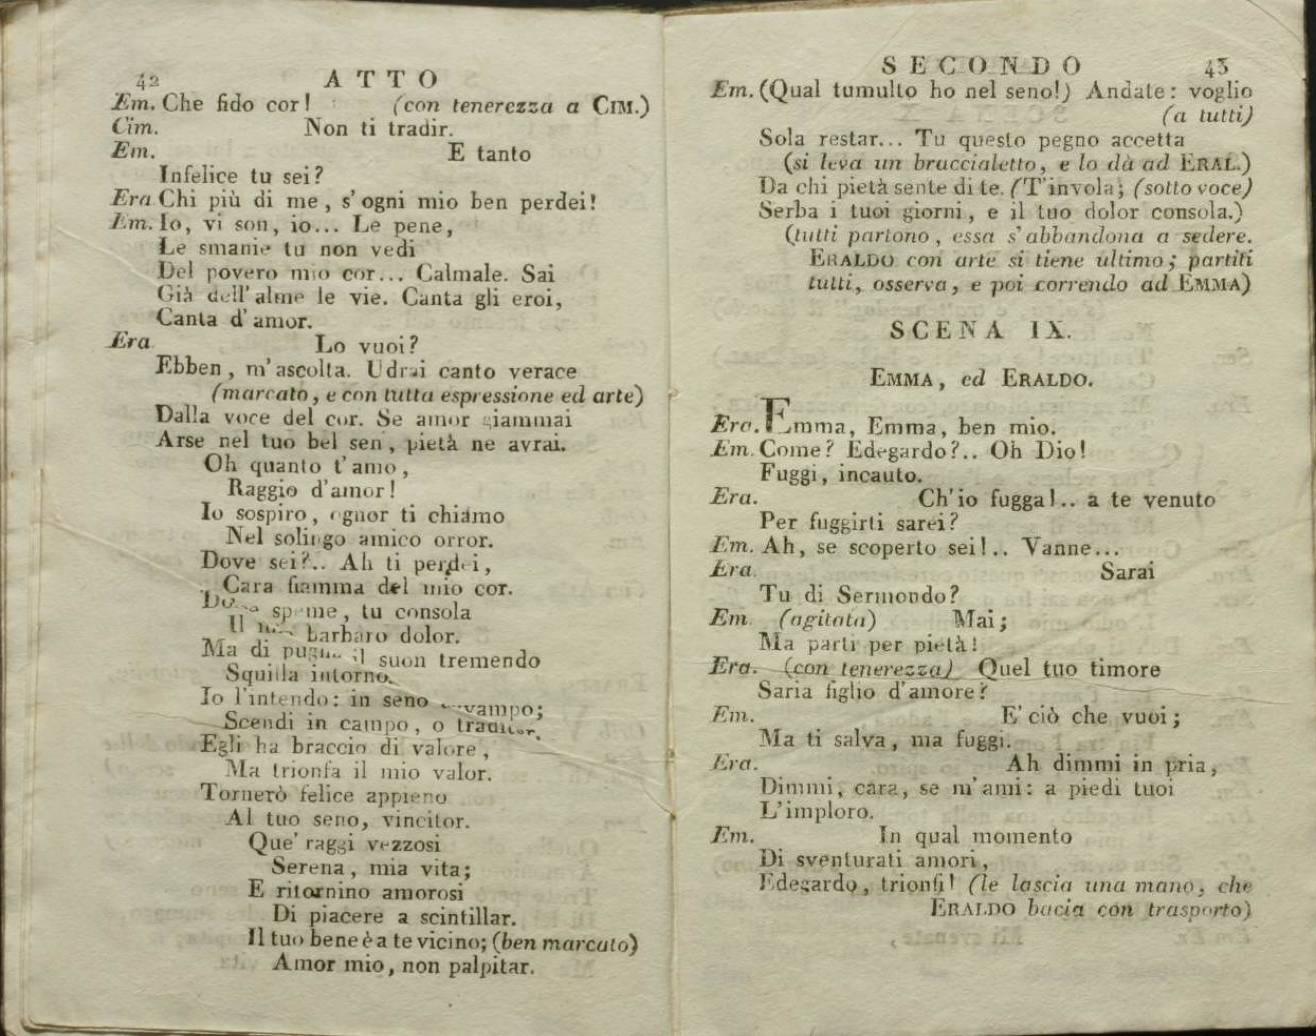 42 ATTO
Em. Che fido cor! (con tenerezza a CIM.)
Cim. Non ti tradir.
Em. E tanto
Infelice tu sei?
Era Chi più di me, s'ogni mio ben perdei!
Em. Io, vi son, io... Le pene,
Le smanie tu non vedi
Del povero mio cor... Calmale. Sai
Già dell'alme le vie. Canta gli eroi,
Canta d'amor.
Era Lo vuoi?
Ebben, m'ascolta. Udrai canto verace
(marcato, e con tutta espressione ed arte)
Dalla voce del cor. Se amor giammai
Arse nel tuo bel sen, pietà ne avrai.
Oh quanto t'amo,
Raggio d'amor!
Io sospiro, ognor ti chiamo
Nel solingo amico orror.
Dove sei?.. Ah ti perdei,
Cara fiamma del mio cor.
speme, tu consola
Il mio barbaro dolor.
Ma di pugna il suon tremendo
Squilla intorno.
Io l'intendo: in seno avvampo;
Scendi in campo, o traditor.
Egli ha braccio di valore,
Ma trionfa il mio valor.
Tornerò felice appieno
Al tuo seno, vincitor.
Que' raggi vezzosi
Serena, mia vita;
E ritornino amorosi
Di piacere a scintillar.
Il tuo bene è a te vicino; (ben marcato)
Amor mio, non palpitar.
SECONDO 43
Em. (Qual tumulto ho nel seno!) Andate: voglio
(a tutti)
Sola restar... Tu questo pegno accetta
(si leva un braccialetto, e lo dà ad ERAL.)
Da chi pietà sente di te. (T'invola; (sotto voce)
Serba i tuoi giorni, e il tuo dolor consola.)
(tutti partono, essa s'abbandona a sedere.
ERALDO con arte si tiene ultimo; partiti
tutti, osserva, e poi correndo ad EMMA)
SCENA IX.
EMMA, ed ERALDO.
Era. Emma, Emma, ben mio.
Em. Come? Edegardo?.. Oh Dio!
Fuggi, incauto.
Era. Ch'io fugga!.. a te venuto
Per fuggirti sarei?
Em. Ah, se scoperto sei!.. Vanne...
Era. Sarai
Tu di Sermondo?
Em. (agitata) Mai;
Ma parti per pietà!
Era. (con tenerezza) Quel tuo timore
Saria figlio d'amore?
Em. E' ciò che vuoi;
Ma ti salva, ma fuggi.
Era. Ah dimmi in pria,
Dimmi, cara, se m'ami: a piedi tuoi
L'imploro.
Em. In qual momento
Di sventurati amori,
Edegardo, trionfi! (le lascia una mano, che
ERALDO bacia con trasporto)